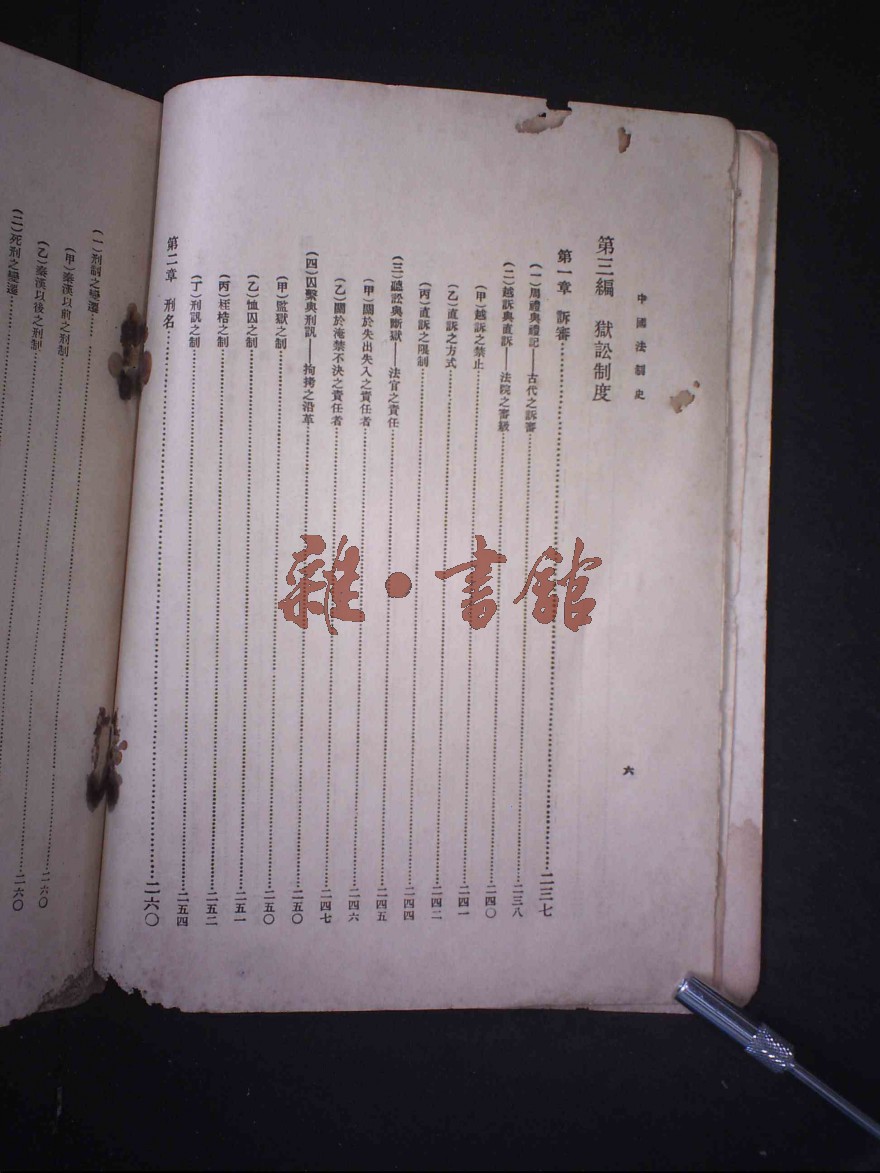 中國法制史
六
第三編 獄訟制度
第一章 訴審……二三七
(一)周禮與禮記——古代之訴審……二三八
(二)越訴與直訴——法院之審級……二四〇
(甲)越訴之禁止……二四一
(乙)直訴之方式……二四二
(丙)直訴之限制……二四四
(三)聽訟與斷獄——法官之責任……二四五
(甲)關於失出失入之責任者……二四六
(乙)關於淹禁不決之責任者……二四七
(四)囚繫與刑訊——拘拷之沿革……二五〇
(甲)監獄之制……二五〇
(乙)恤囚之制……二五一
(丙)桎梏之制……二五二
(丁)刑訊之制……二五四
第二章 刑名……二六〇
(一)刑制之變遷……
(甲)秦漢以前之刑制……二六〇
(乙)秦漢以後之刑制……二六〇
(二)死刑之變遷……
雜·書館